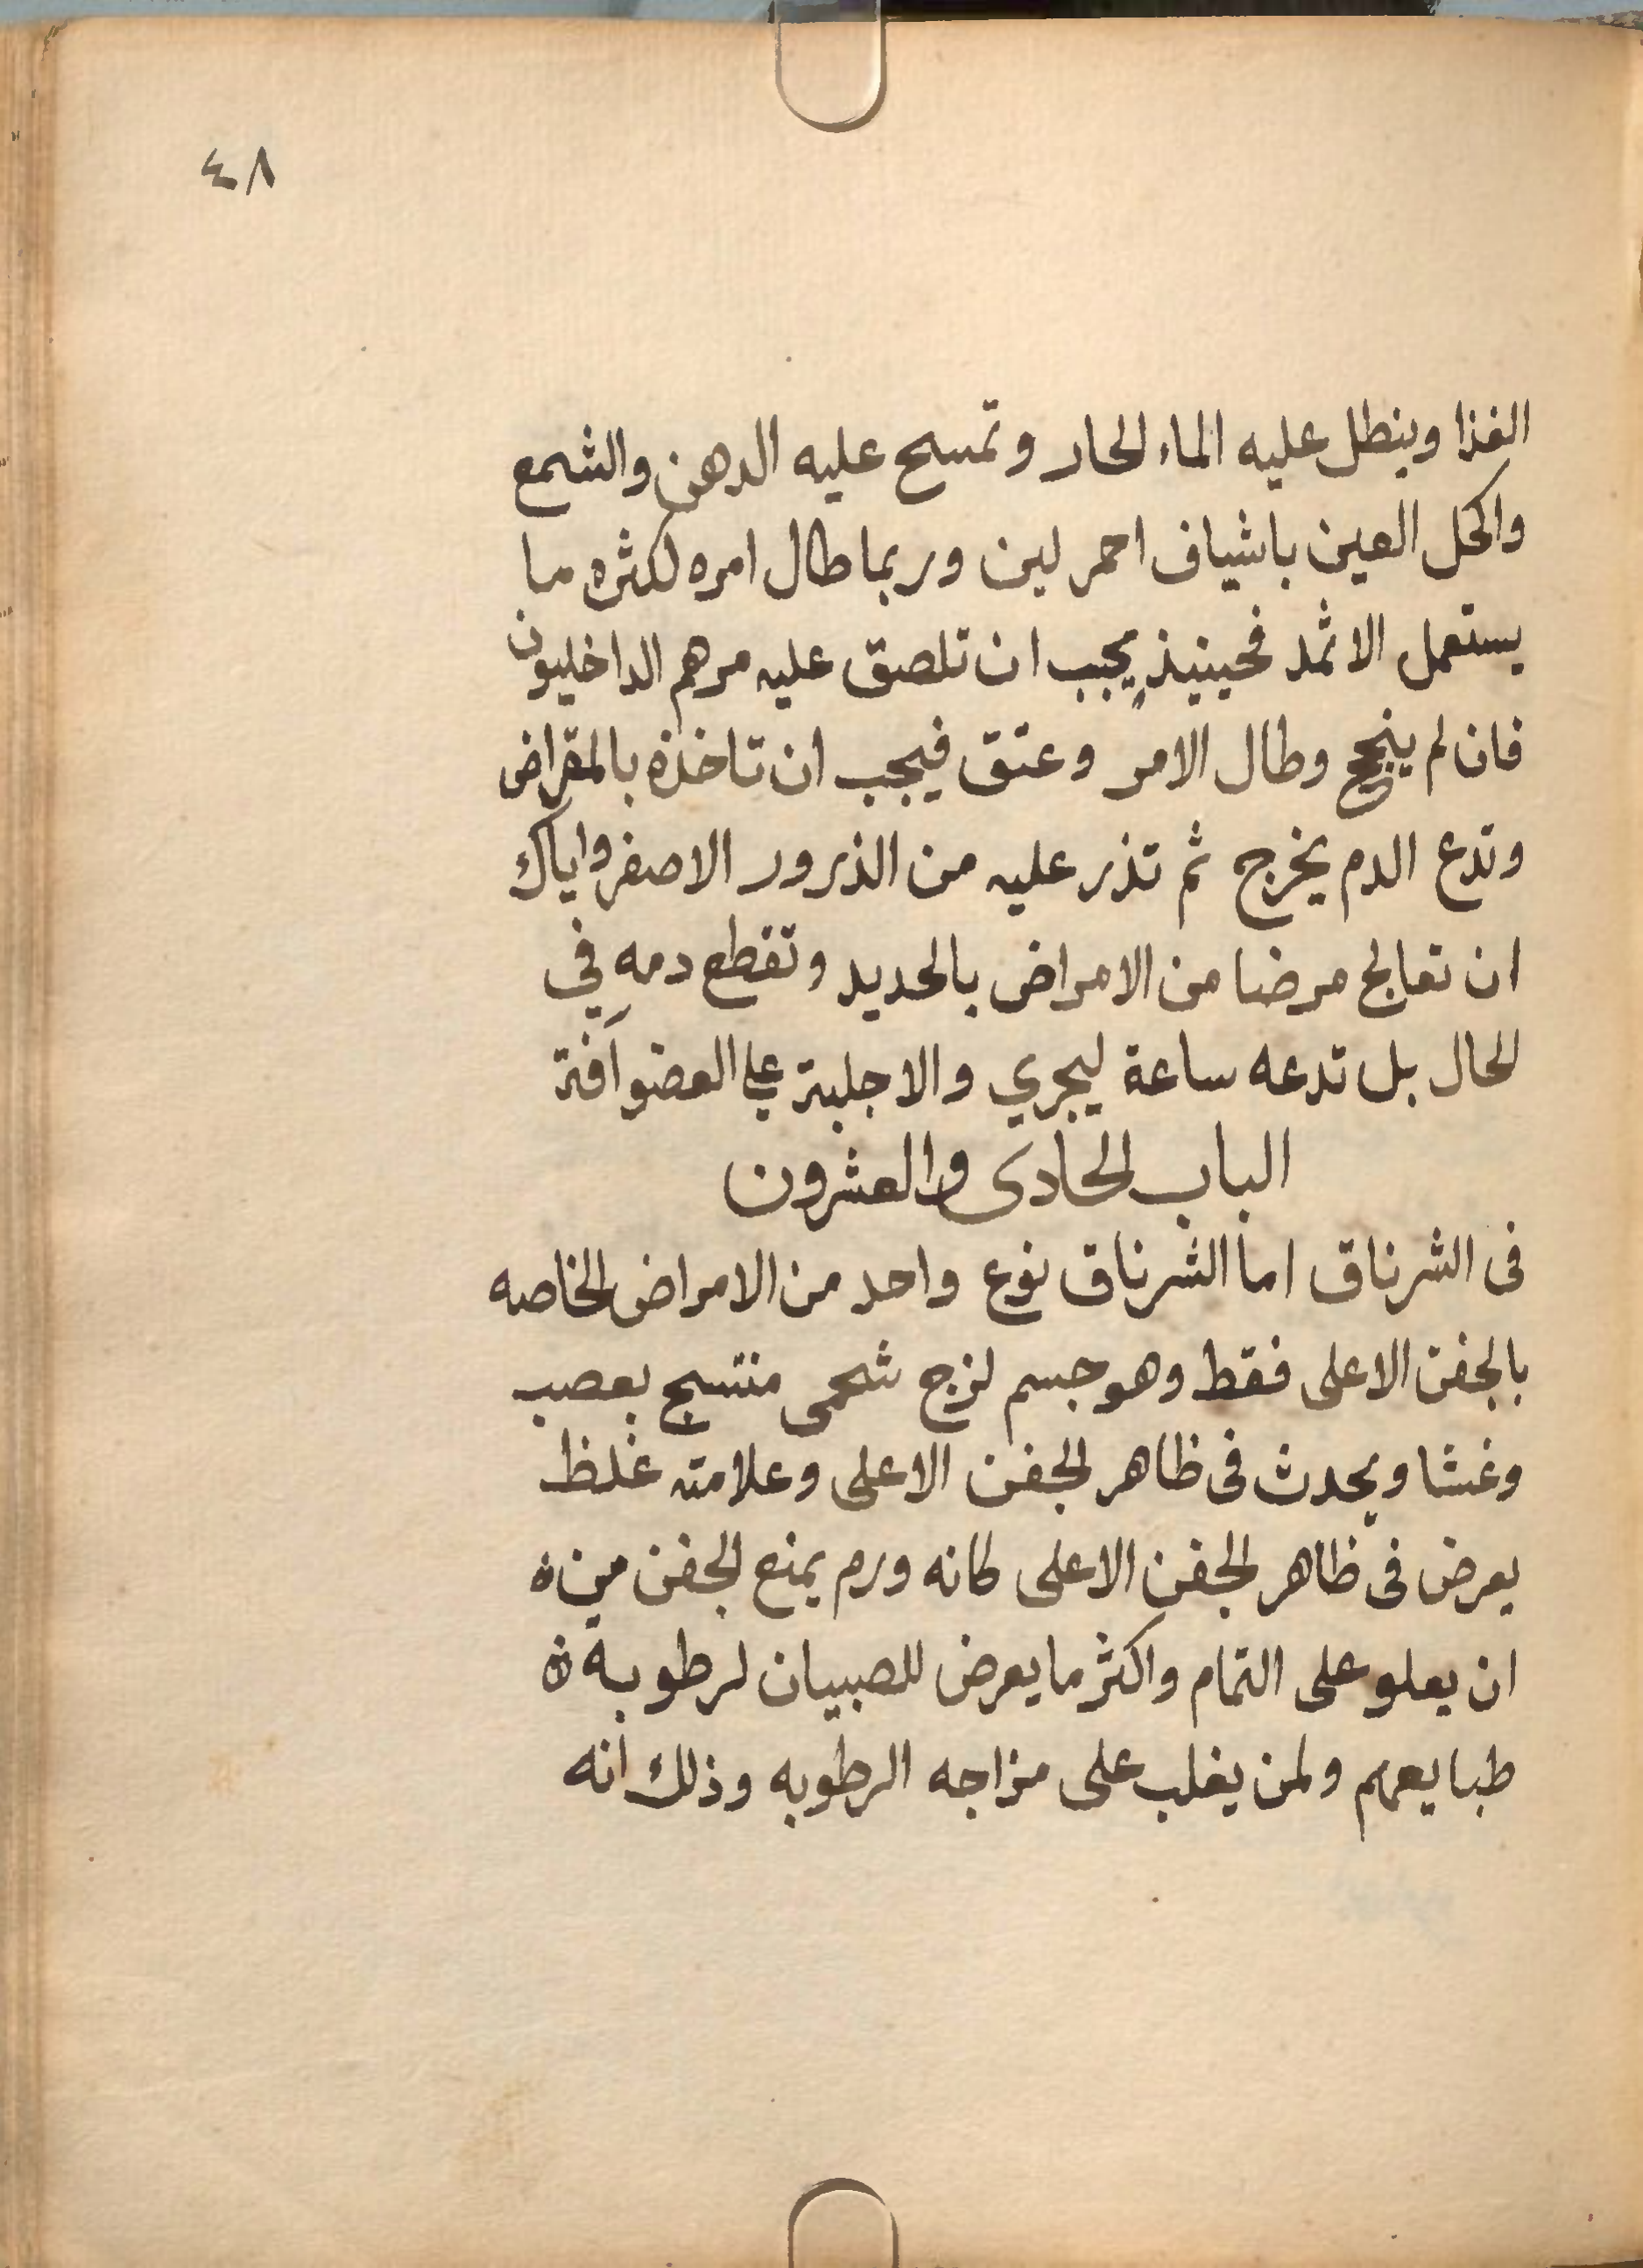 ٤٨
الغذا وينطل عليه الماء الحار وتمسح عليه الدهن والشمع
واكحل العين باشياف احمر لين وربما طال امره لكثره ما
يستعمل الاثمد فحينيذ يجب ان تلصق عليه مرهم الداخليون
فان لم ينجح وطال الامر وعتق فيجب ان تاخذه بالمقراض
وتدع الدم يخرج ثم تذر عليه من الذرور الاصفر واياك
ان تعالج مرضا من الامراض بالحديد وتقطع دمه في
الحال بل تدعه ساعة ليجري والا جلبة علي العضو آفة
الباب الحادى والعشرون
فى الشرناق اما الشرناق نوع واحد من الامراض الخاصه
بالجفن الاعلى فقط وهو جسم لزج شحمى منتسج بعصب
وغشا ويحدث فى ظاهر الجفن الاعلى وعلامته غلظ
يعرض فى ظاهر الجفن الاعلى كانه ورم يمنع الجفن من
ان يعلو على التمام واكثر ما يعرض للصبيان لرطوبة
طبايعهم ولمن يغلب على مزاجه الرطوبه وذلك انه